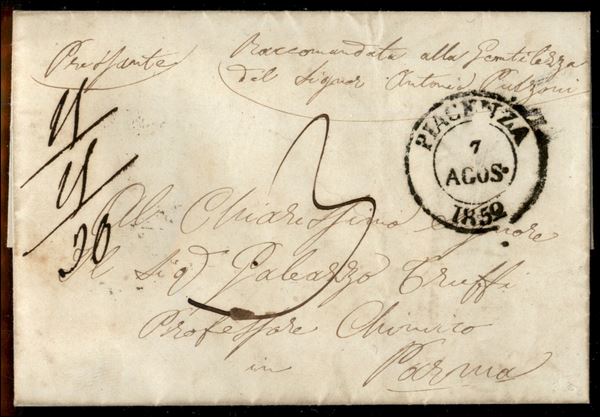 Pressante
Raccomandata alla Gentilezza
del Signor Antonio
PIACENZA
7
AGOS.
1852
3
30
Al Chiarissimo Signore
Il Sigr Galeazzo Truffi
Professore Chimico
in Parma